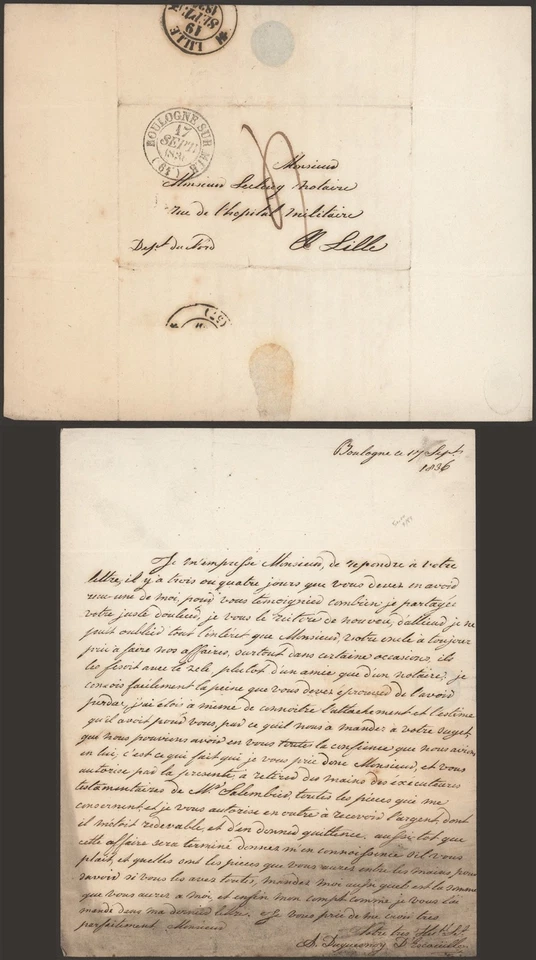 LILLE
19
SEPT.
BOULOGNE-SUR-MER
17
SEPT.
1836
(61)
Monsieur
Monsieur Leclercq notaire
rue de l'hopital militaire
A Lille
Dept. du Nord
Boulogne ce 17 Sept.
1836
Je m'empresse Monsieur, de repondre à votre
lettre, il y a trois ou quatre jours que vous devez en avoir
recu une de moi, pour vous temoigner combien je partage
votre juste douleur, je vous le reitere de nouveau, d'ailleur je ne
puis oublier tout l'interet que Monsieur votre oncle à toujour
pris à faire nos affaires, surtout dans certaine occasions, il
les fesoit avec le zele plutot d'un amie que d'un notaire, je
concois facilement la peine que vous devez eprouver de l'avoir
perdu, j'ai étois à même de connoitre l'attachement et l'estime
qu'il avoit pour vous, par ce qu'il nous à mander à votre sujet
que nous pouvions avoir en vous toutes la confience que nous avions
en lui, c'est ce qui fait que je vous prie donc Monsieur, et vous
autorise par la presente, à retirer des mains des éxécuteures
testamentaires de Mr Salembier, toutes les pieces qui me
concernent, et je vous autorise en outre à recevoir l'argent, dont
il m'étoit redevable, et d'en donner quittence, aussi-tot que
cette affaire sera terminé donnez m'en connoissence s'il vous
plait, et quelles ont les pieces que vous aurez entre les mains pour
savoir si vous les avez toutes, mandez moi aussi quels est la somme
que vous aurez a moi et enfin mon compte comme je vous l'ai
mandé dans ma derniere lettre. Je vous prie de me croire tres
parfaitement Monsieur
Votre tres